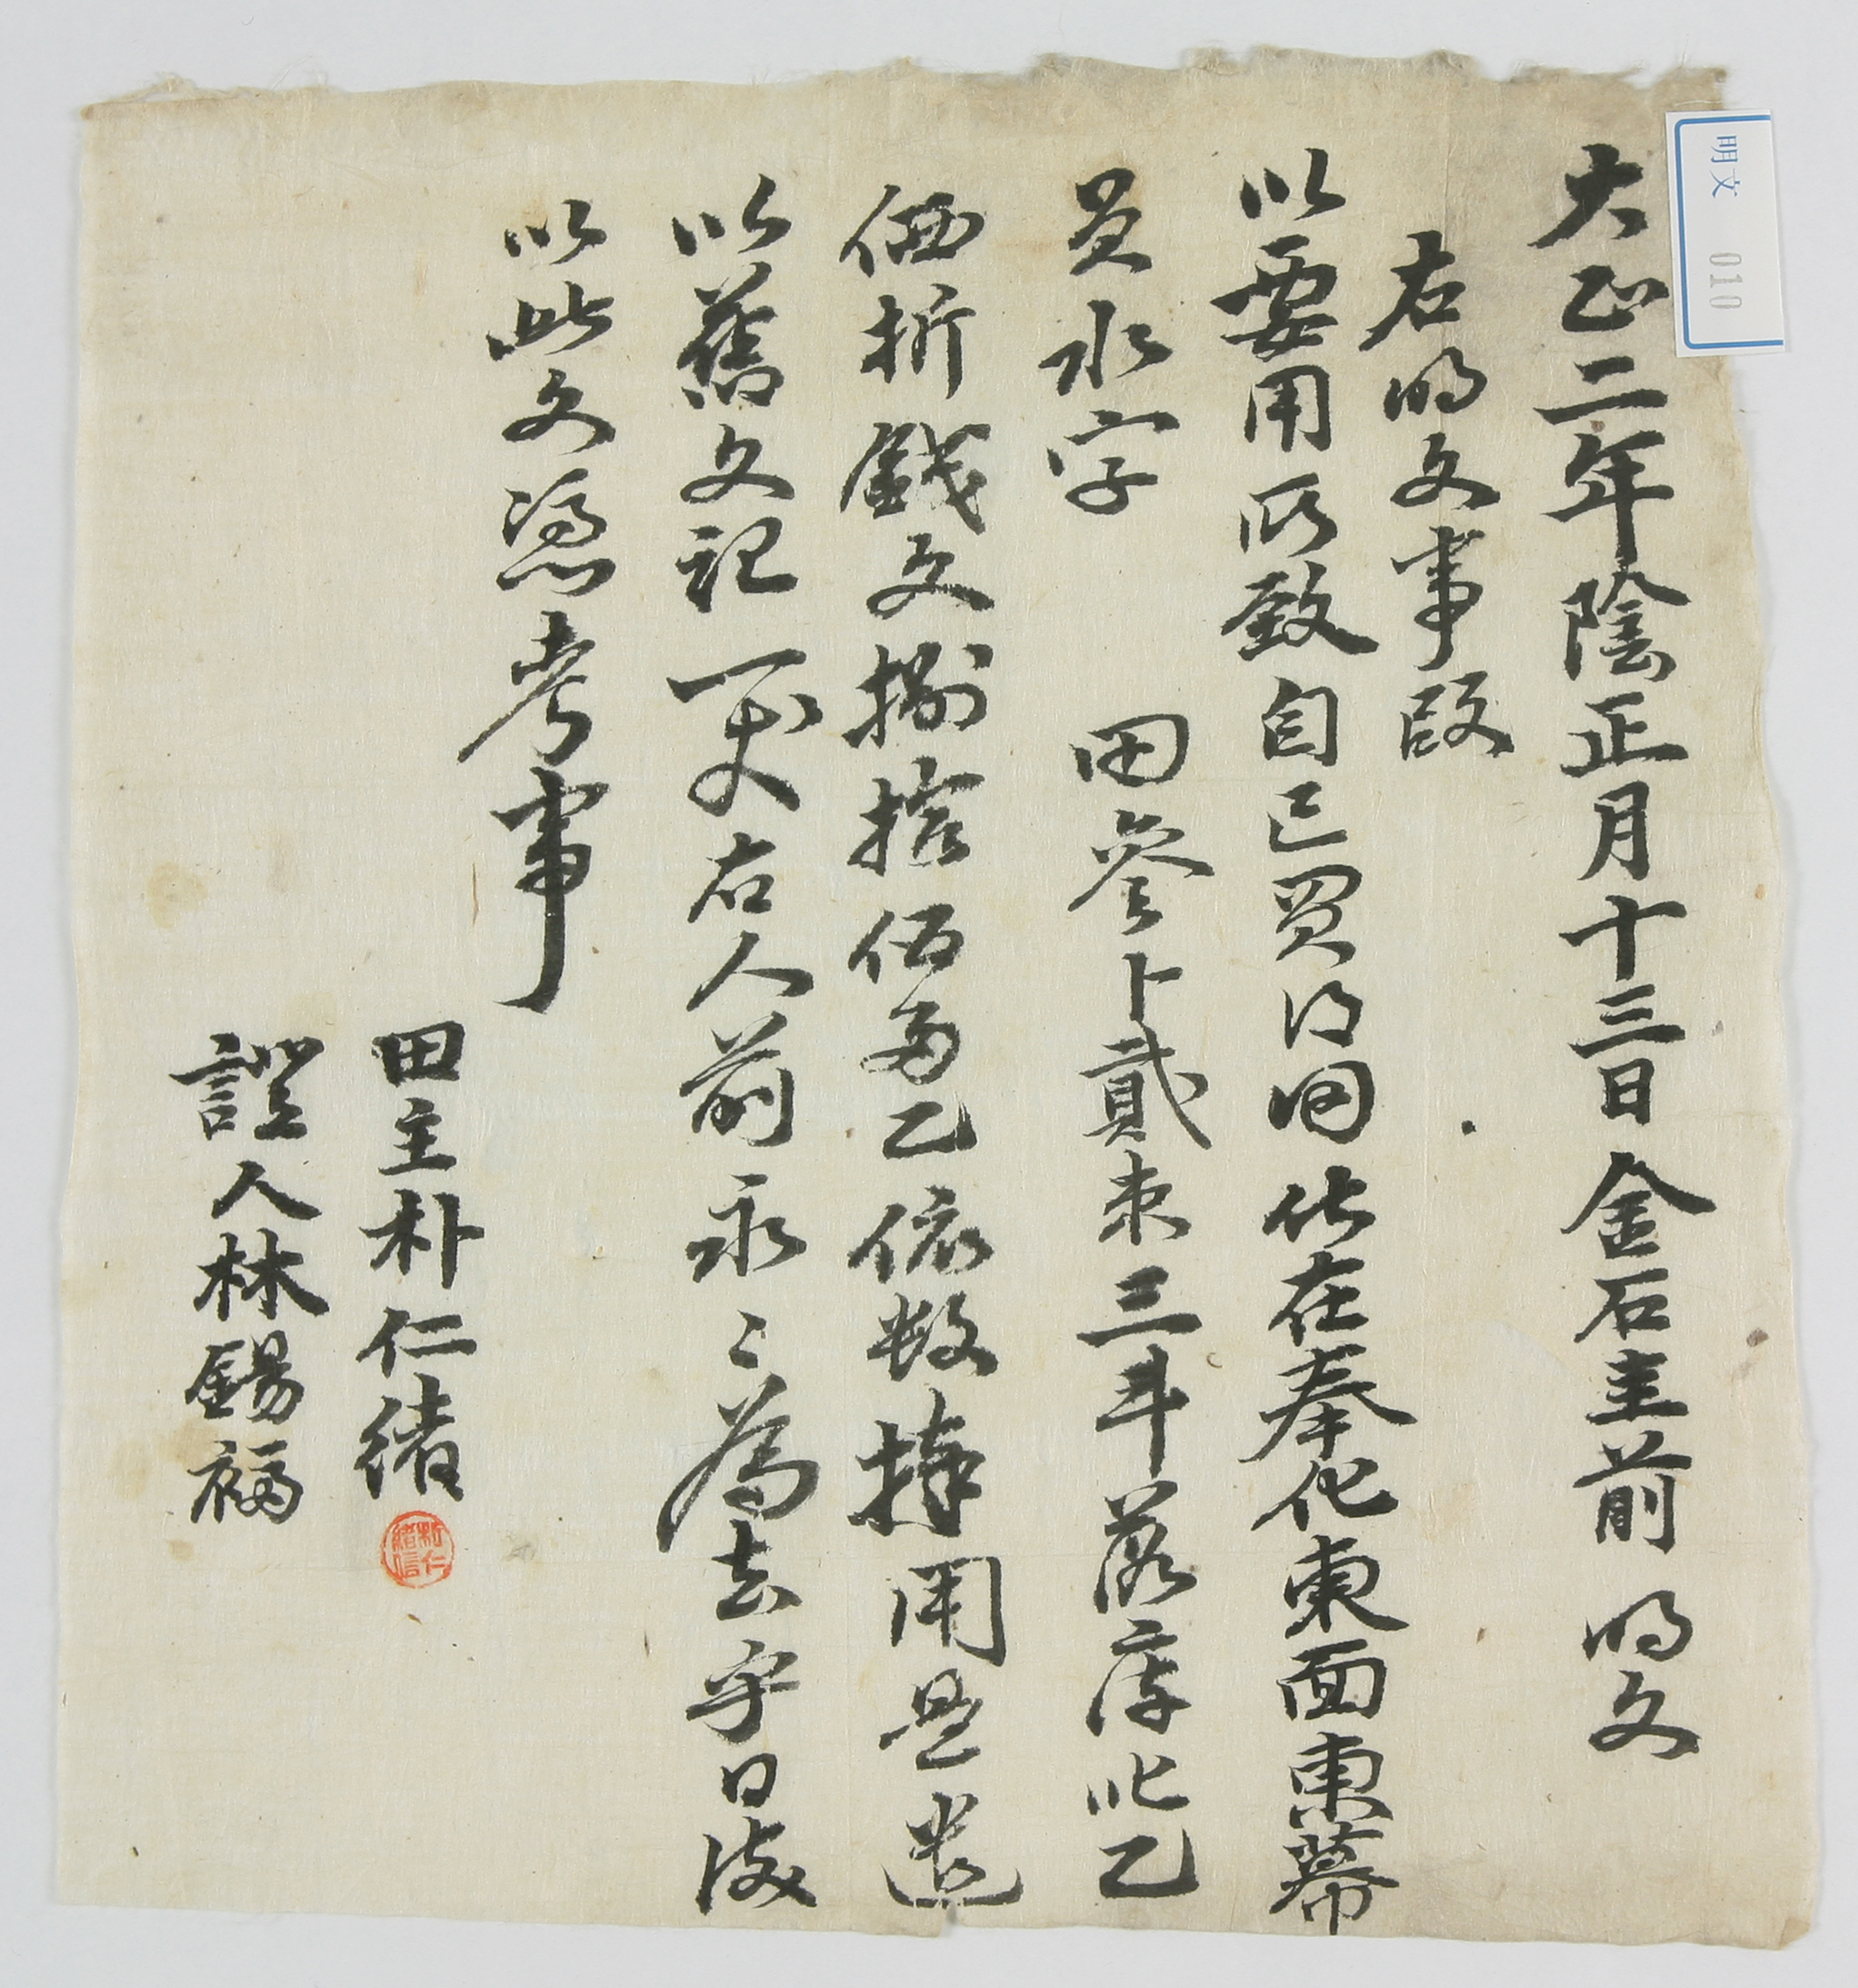 明文 010
大正二年陰正月十三日金石圭前 明文
右明文事段
以要用所致自己買得田伏在奉化東面東幕
員水字 田參卜貳束三斗落庫此乙
価折錢文捌拾伍兩乙依數捧用是遣
以舊文記一丈右人前永〻為去乎日後
以此文憑考事
田主朴仁緒
朴仁緒信
證人林錫福